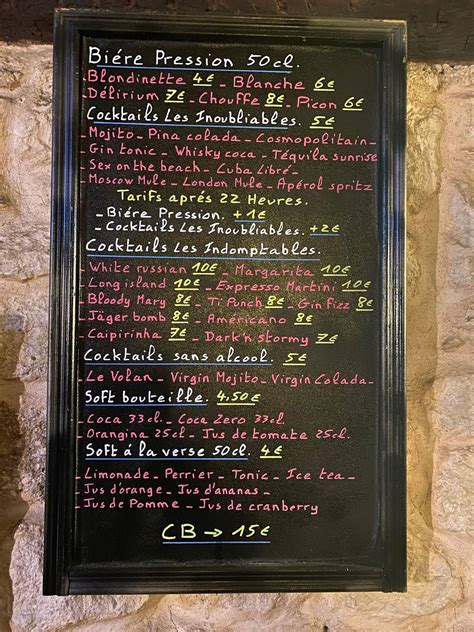 Biére Pression 50cl.
- Blondinette 4€ - Blanche 6€
- Délirium 7€ - Chouffe 8€ - Picon 6€
Cocktails Les Inoubliables. 5€
- Mojito - Pina colada - Cosmopolitain -
- Gin tonic - Whisky coca - Téquila sunrise
- Sex on the beach - Cuba Libré -
- Moscow Mule - London Mule - Apérol spritz
Tarifs aprés 22 Heures.
- Biére Pression. +1€
- Cocktails Les Inoubliables. +2€
Cocktails Les Indomptables.
- White russian 10€ - Margarita 10€
- Long island 10€ - Expresso Martini 10€
- Bloody Mary 8€ - Ti Punch 8€ - Gin Fizz 8€
- Jäger bomb 8€ - Américano 8€
- Caipirinha 7€ - Dark'n stormy 7€
Cocktails sans alcool. 5€
- Le Volan - Virgin Mojito - Virgin Colada -
Soft bouteille. 4,50€
- Coca 33cl. - Coca Zero 33cl.
- Orangina 25cl - Jus de tomate 25cl.
Soft á la verse 50cl. 4€
- Limonade - Perrier - Tonic - Ice tea -
- Jus d'orange - Jus d'ananas -
- Jus de Pomme - Jus de cranberry
CB → 15€